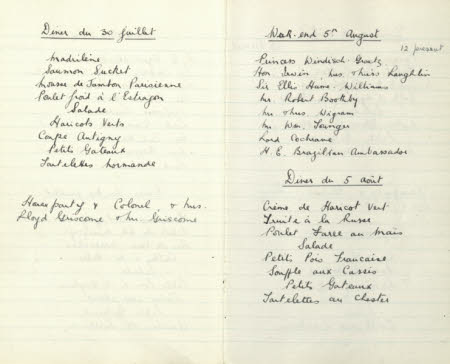 Diner du 30 Juillet
Madrilène
Saumon Suchet
Mousse de Jambon Parisienne
Poulet froid à l'Estragon
Salade
Haricots Verts
Coupe Antigny
Petits Gateaux
Tartelettes Normande
House party & Colonel & Mrs.
Lloyd Griscome & Mr Griscome
Week-end 5th August
12 present
Princess Windisch-Graetz
Hon Irwin, Mrs. Laughlin
Sir Ellis Hume-Williams
Mr. Robert Boothby
Mr. Thos. Wigram
Mr. Wm. Younger
Lord Cochrane
H. E. Brazilian Ambassador
Diner du 5 août
Crème de Haricot Vert
Truite à la Russe
Poulet Farce au Maïs
Salade
Petits Pois Francaise
Souffle aux Cassis
Petits Gateaux
Tartelettes au Chester